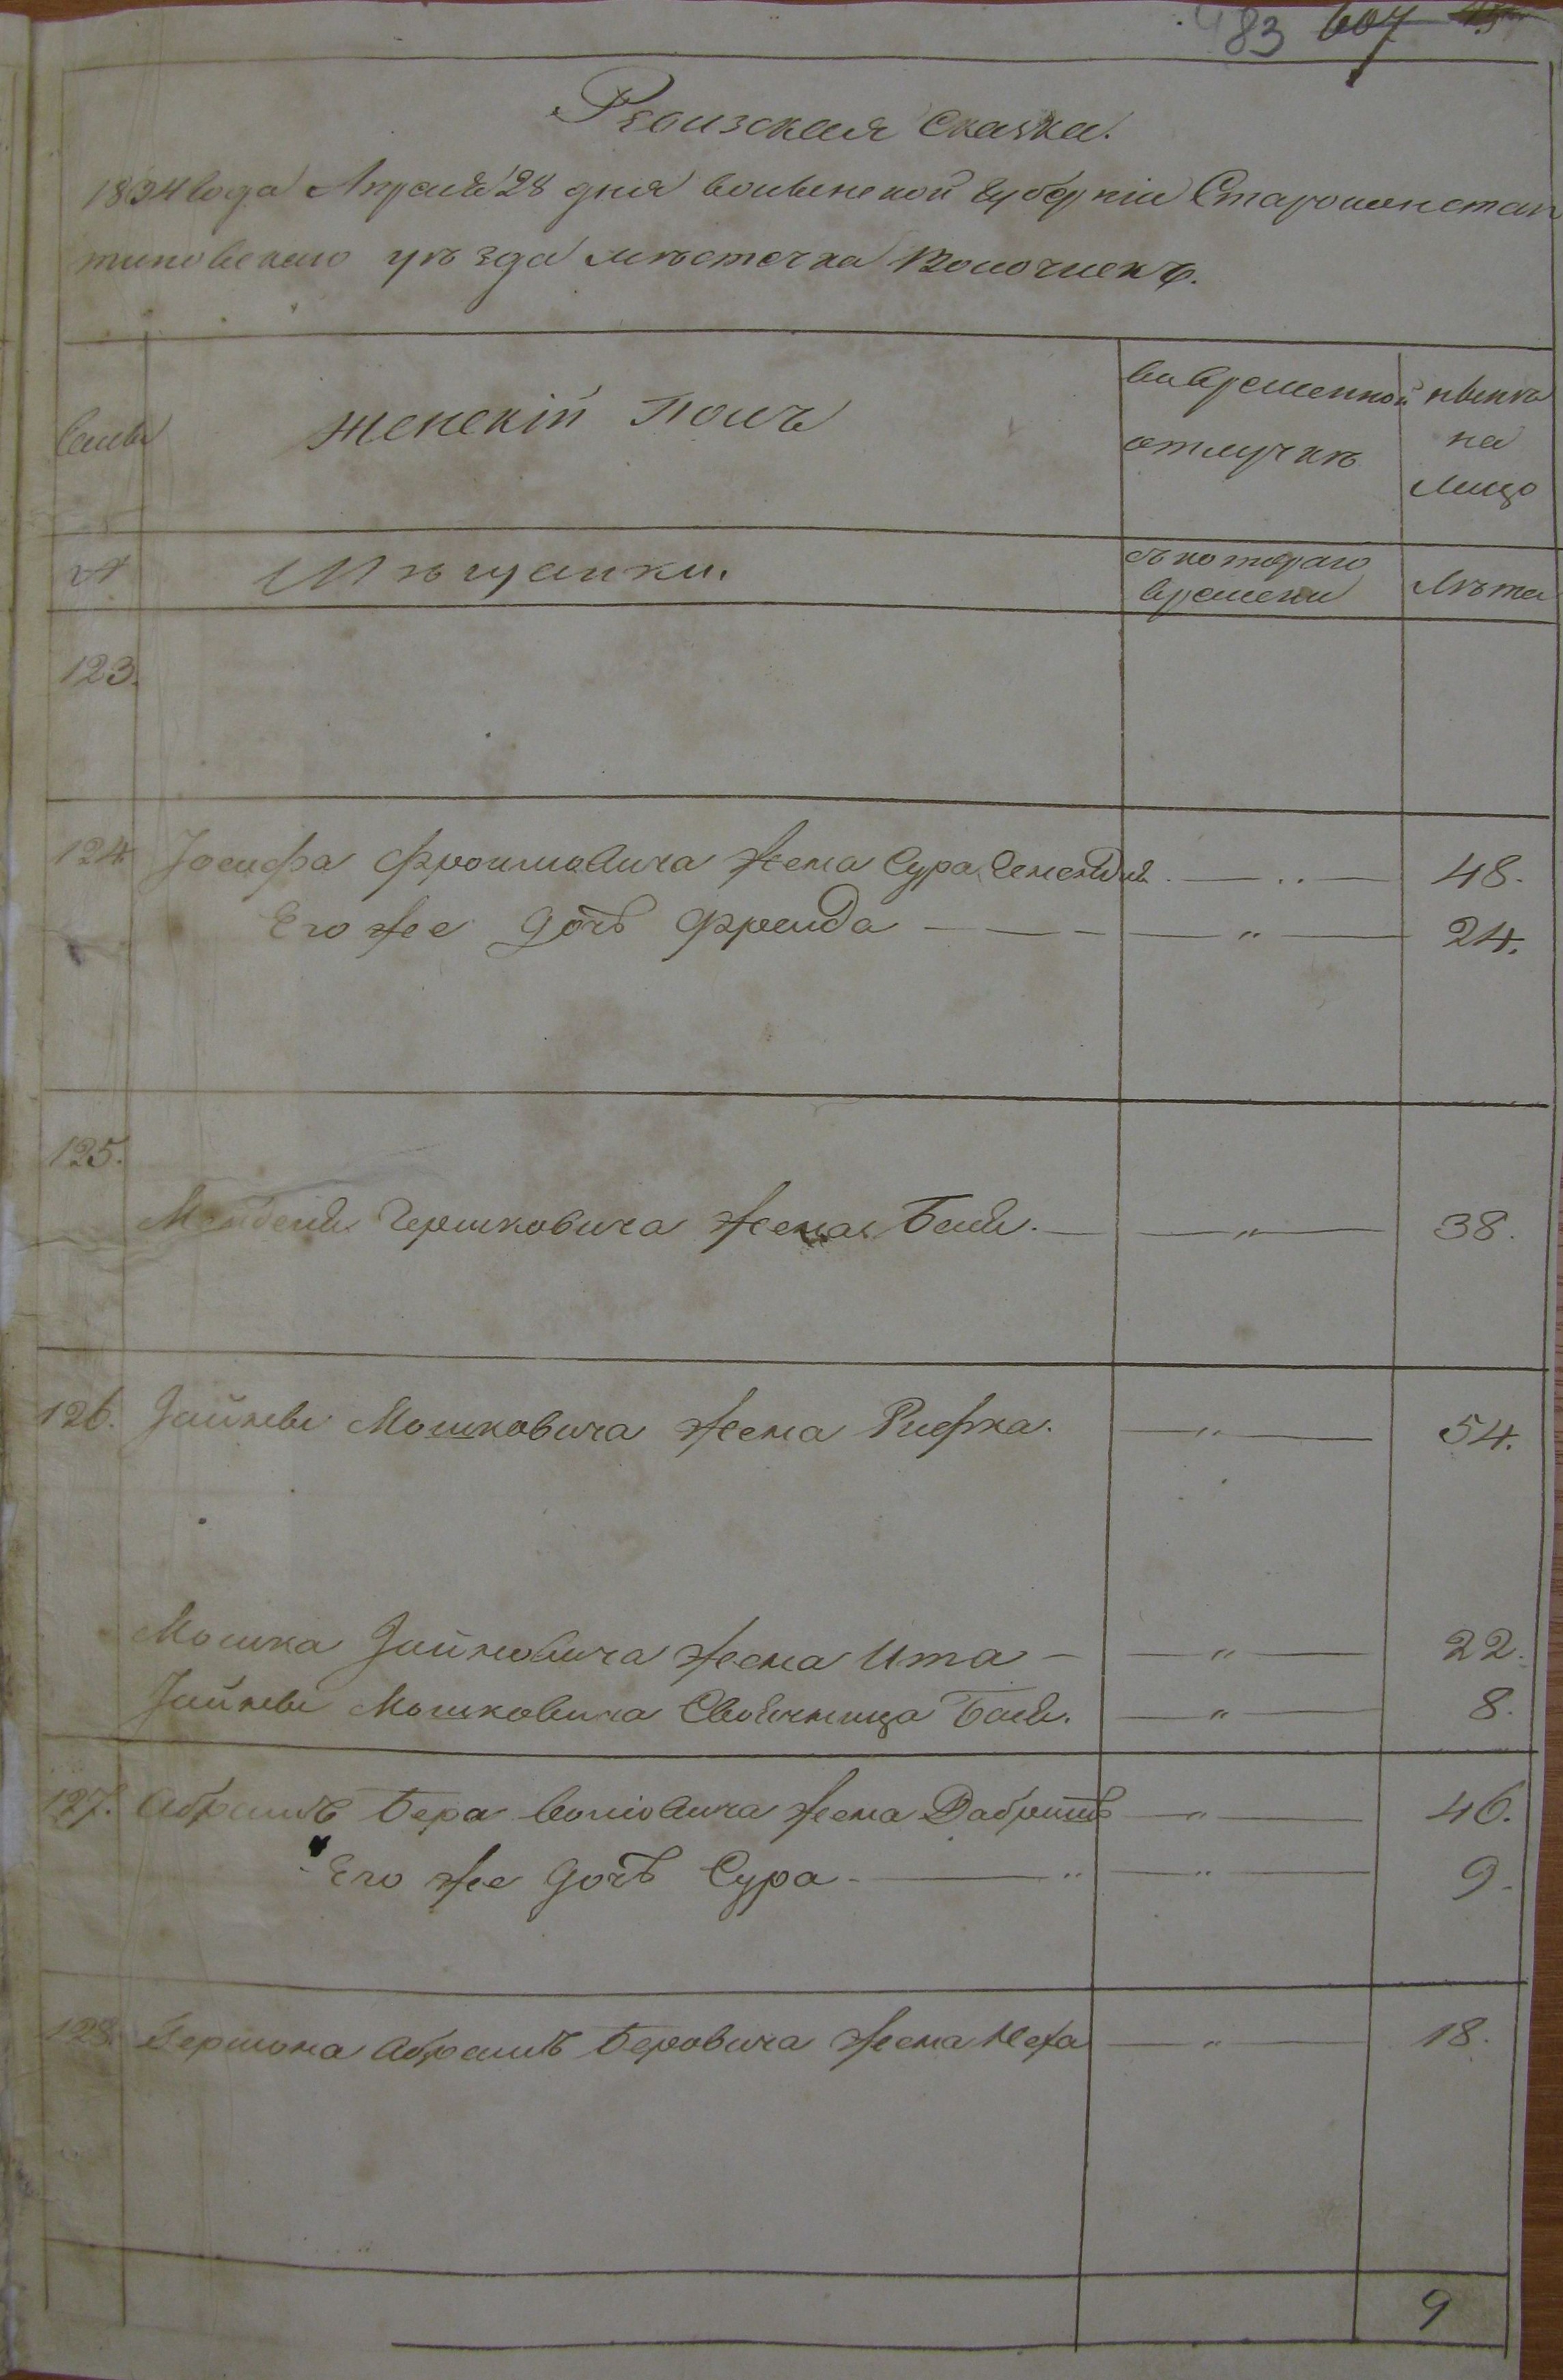 483 607
Ревизская Сказка.
1834 года Апреля 28 дня волынской губерніи Староконстан
тиновскаго уѣзда мѣстечка Волочискъ.
Семьи
женскій Полъ
вовременной отлучкѣ
нынѣ на лицо
№
Мѣщанки.
съ котораго времени
Лѣта
123.
124 Іосифа Фроимовича Жена Сура — .. — 48.
Его же дочь Фрейда — " — 24.
125.
Менделя Гершковича Жена Бейля. — " — 38.
126. Зайнвеля Мошковича Жена Рифка. — " — 54.
Мошка Зайнвеловича Жена Ита — " — 22.
Зайнвеля Мошковича Своячница Бейля. — " — 8.
127. Абрамъ Бера Жена Добришъ — " — 46.
Его же дочь Сура — " — 9.
128. Гершона Абрамъ Беровича Жена Неха — " — 18.
9